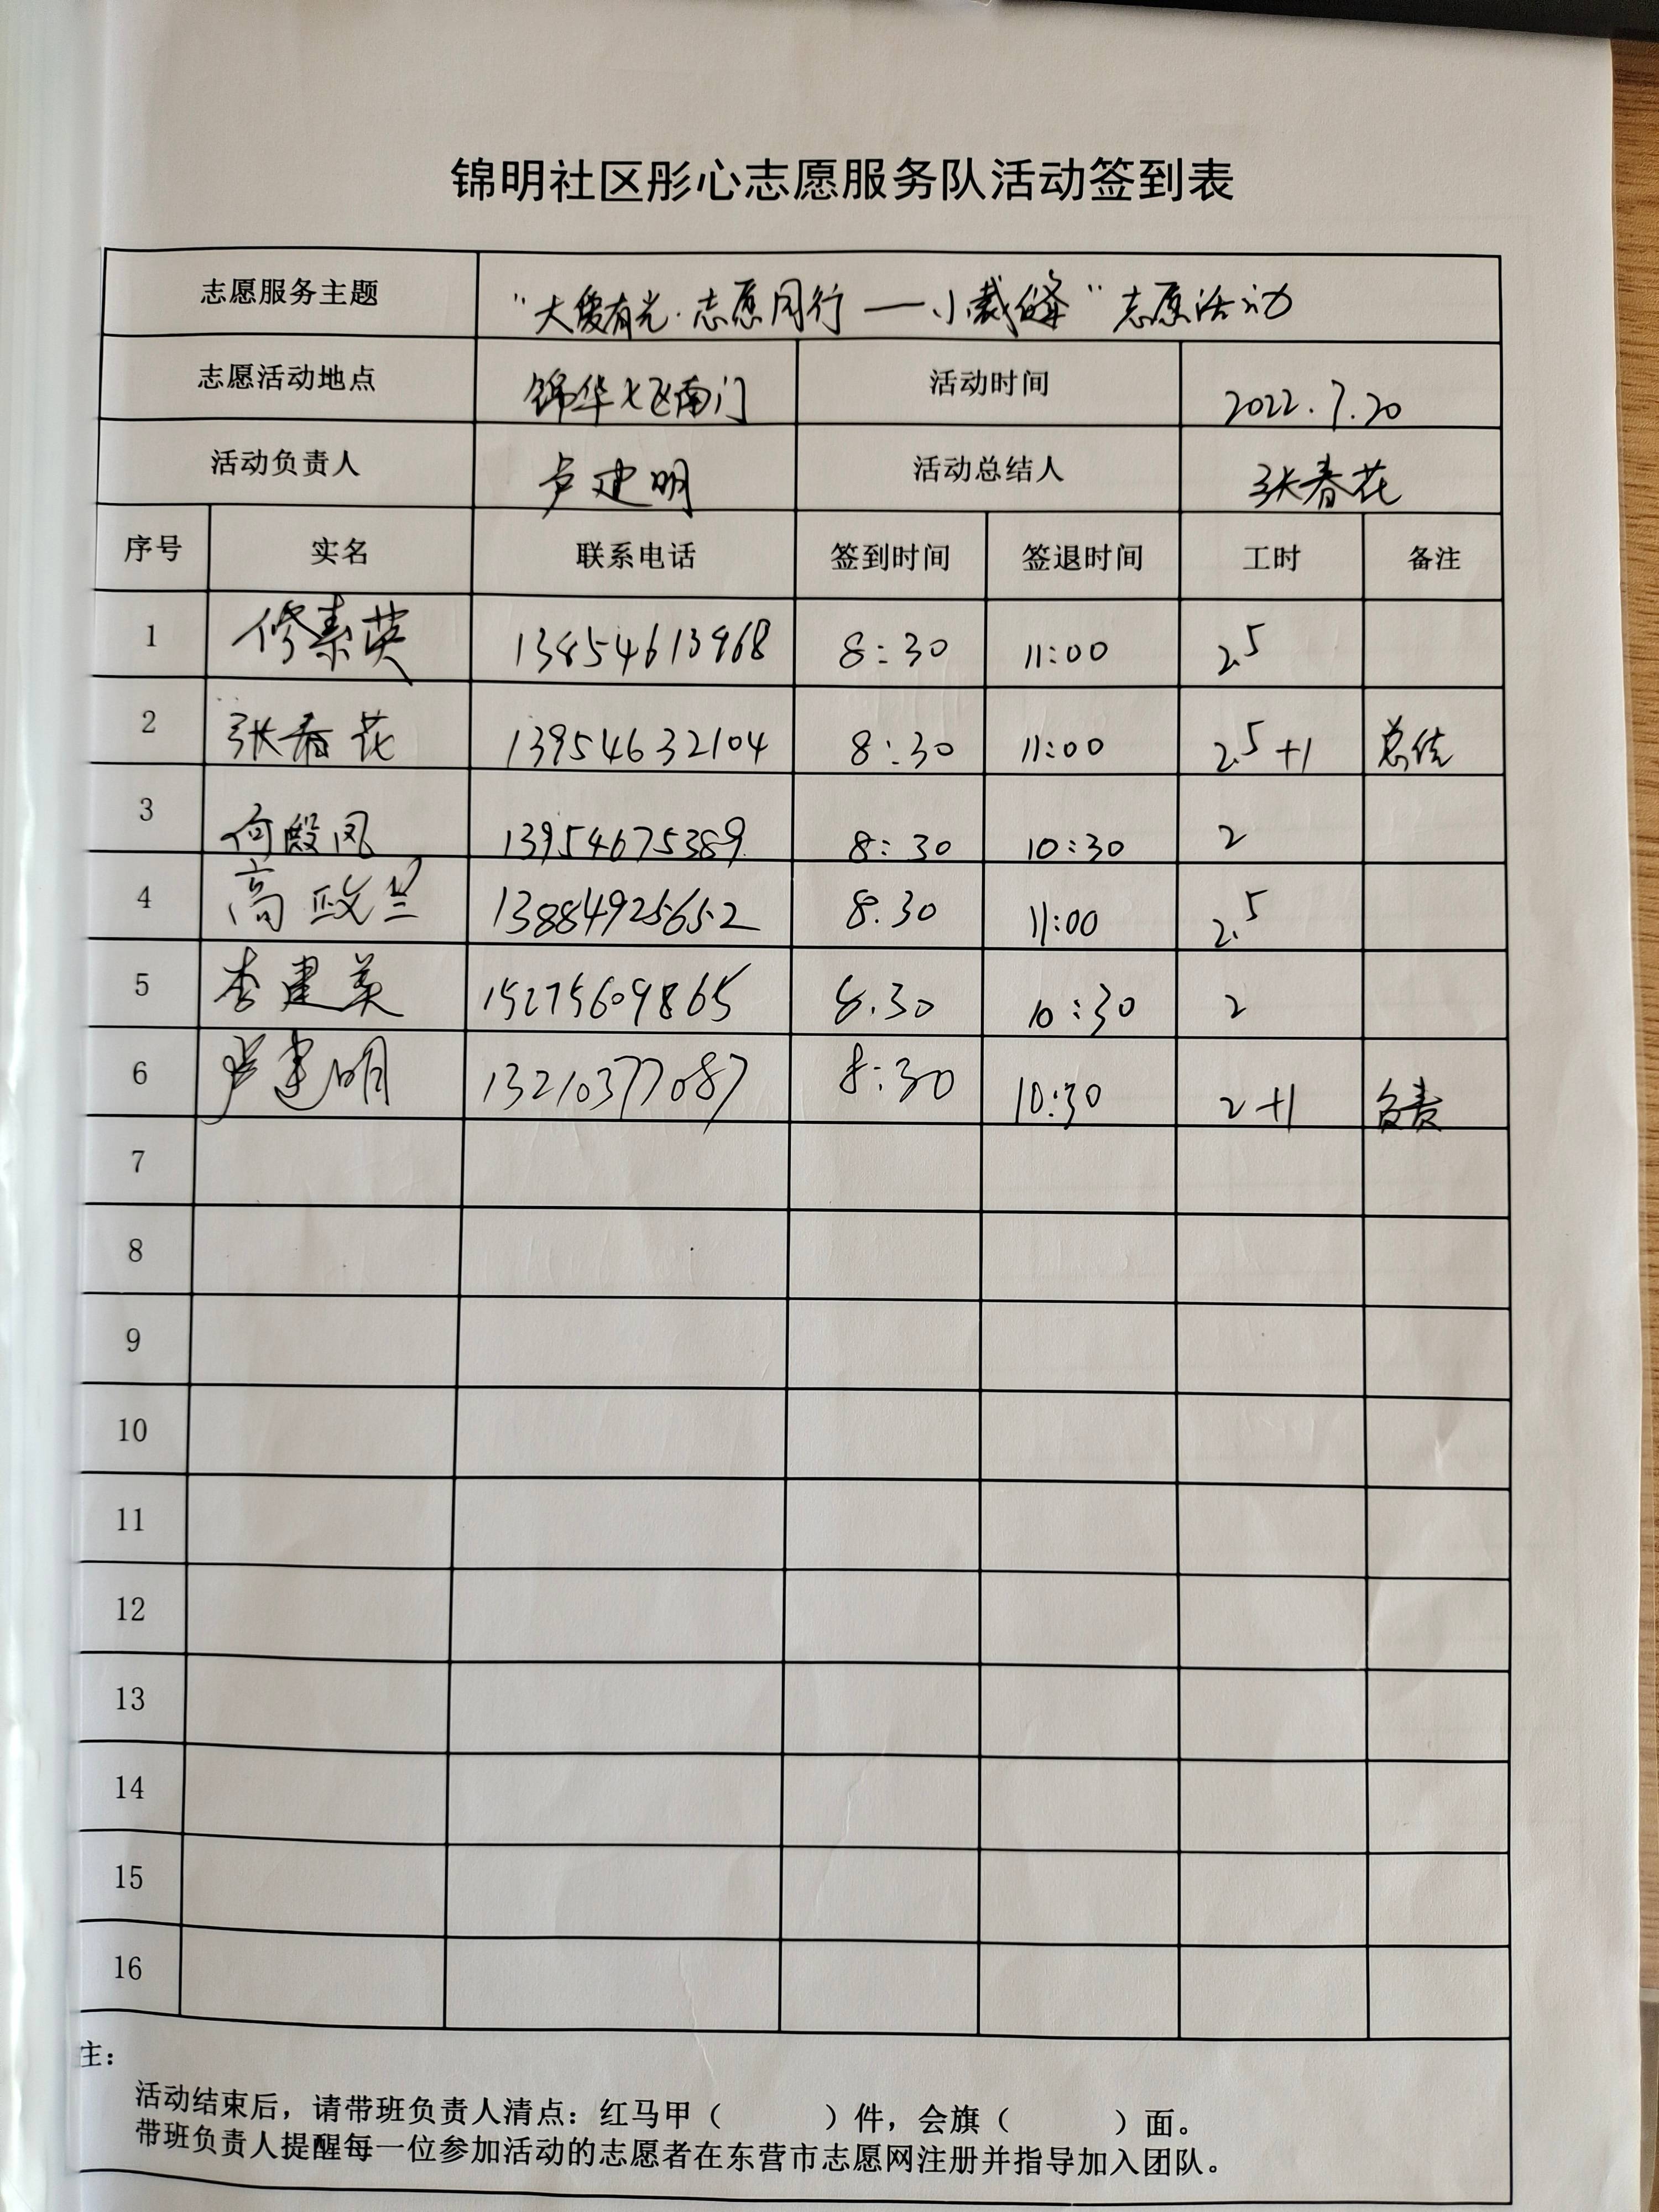 锦明社区彤心志愿服务队活动签到表
志愿服务主题 "大爱有光·志愿同行——小裁缝"志愿活动
志愿活动地点 锦华七区南门 活动时间 2022.7.20
活动负责人 卢建明 活动总结人 张春花
序号 实名 联系电话 签到时间 签退时间 工时 备注
1 修素英 13854613968 8:30 11:00 2.5
2 张春花 13954632104 8:30 11:00 2.5+1 总结
3 何殿凤 13954675389 8:30 10:30 2
4 高政兰 13884925652 8.30 11:00 2.5
5 李建英 15275609865 8.30 10:30 2
6 卢建明 13210377087 8:30 10:30 2+1 负责
7
8
9
10
11
12
13
14
15
16
主：
活动结束后，请带班负责人清点：红马甲（ ）件，会旗（ ）面。
带班负责人提醒每一位参加活动的志愿者在东营市志愿网注册并指导加入团队。